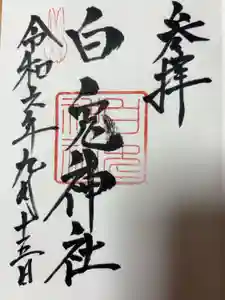 参拝
白兎神社
令和六年九月十三日